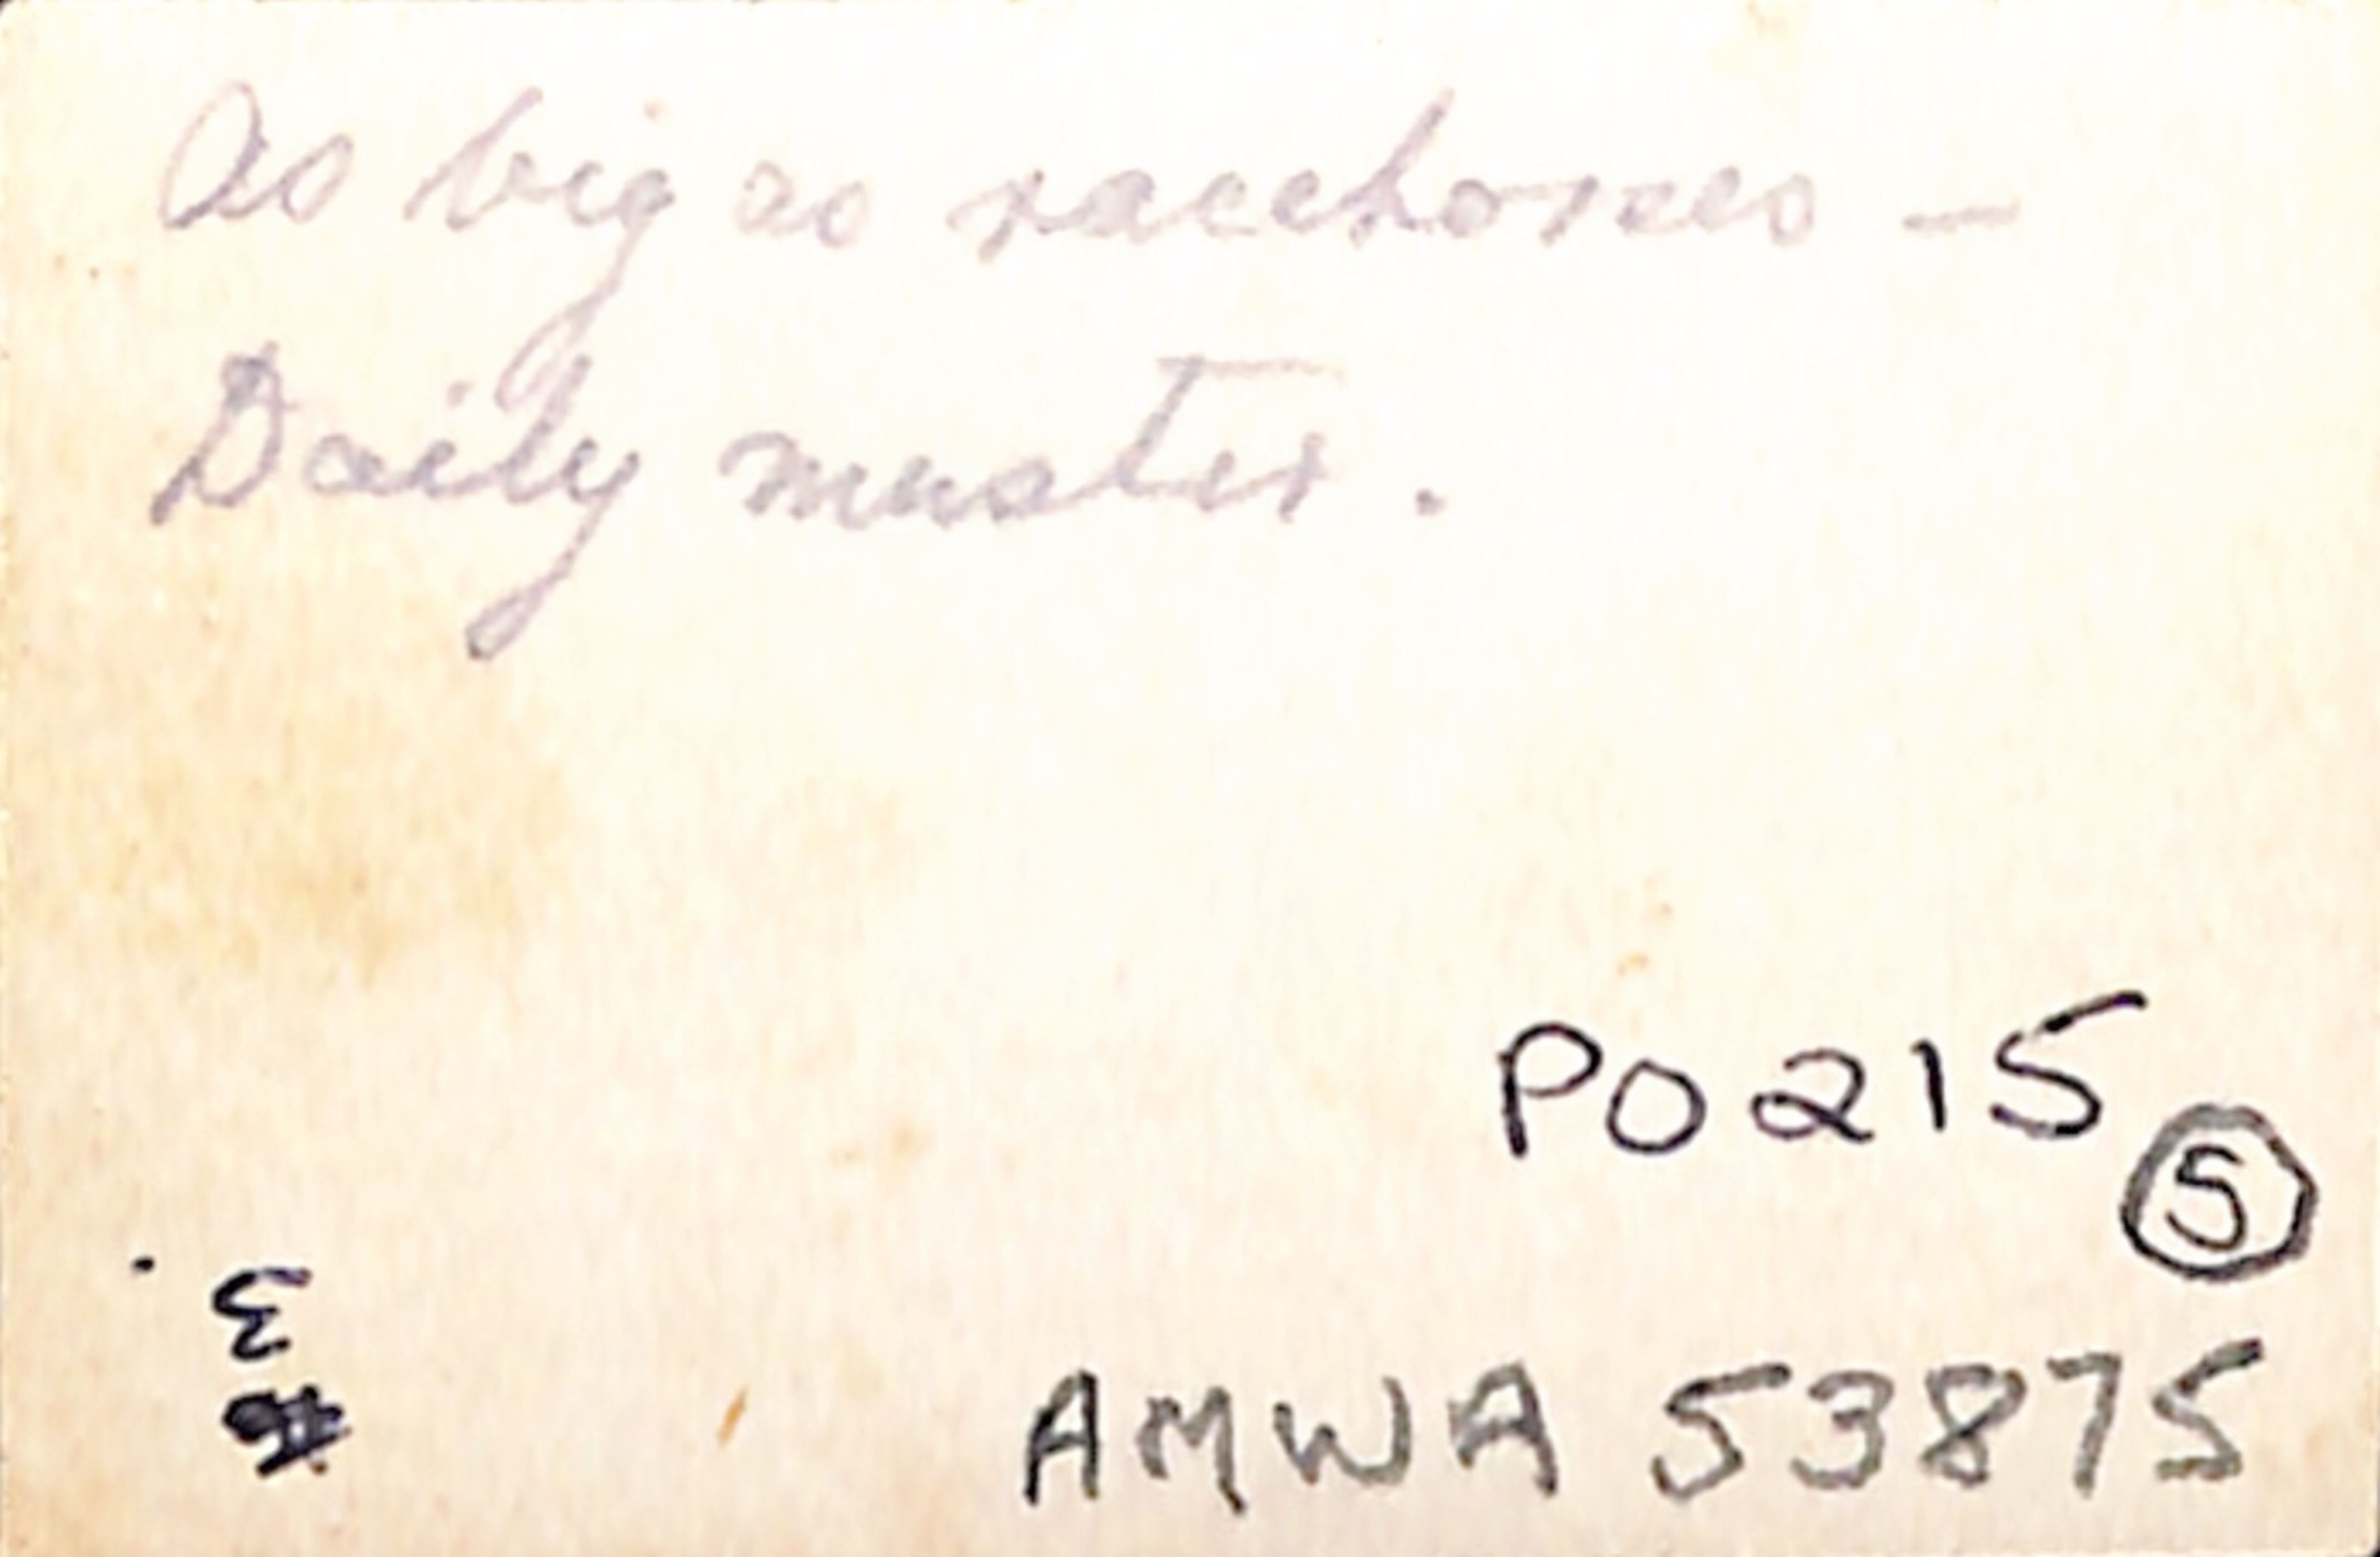 As big as racehorses –
Daily muster.
PO215
5
AMWA 53875
3